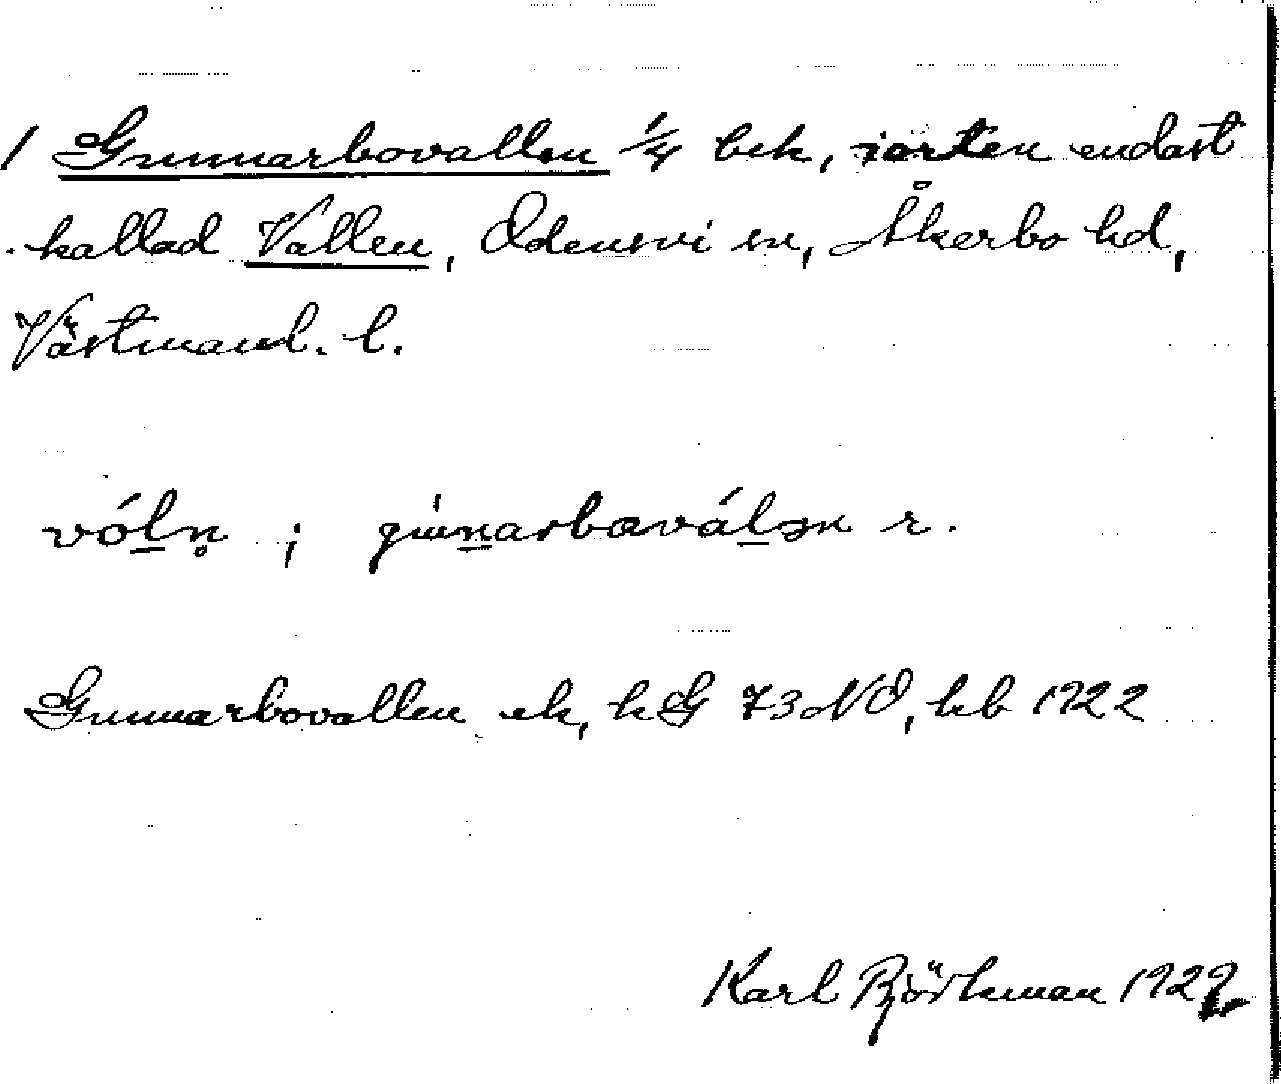 1 Gunnarbovallen 1/4 bek, i orten endast
kallad Vallen, Odensvi sn, Åkerbo hd,
Västmanl. l.
vóln̥ ; gùnarboválən r.
Gunnarbovallen ek, kG 73 NO, kb 1922
Karl Björkman 1929